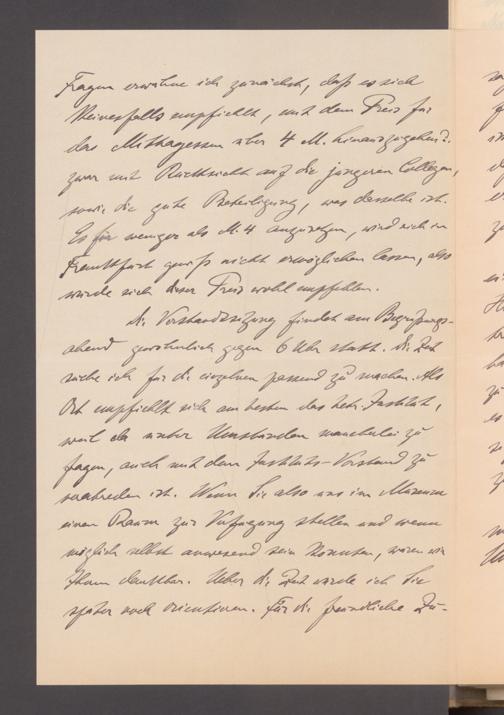 Fragen erwähne ich zunächst, daß es sich
keinesfalls empfiehlt, mit dem Preis für
das Mittagessen über 4 M. hinauszugehen u.
zwar mit Rücksicht auf die jüngeren Collegen,
sowie die gute Beteiligung, was dasselbe ist.
Es für weniger als M. 4 anzusetzen, wird sich in
Frankfurt gewiß nicht ermöglichen lassen, also
würde sich dieser Preis wohl empfehlen.
Die Vorstandssitzung findet am Begrüßungs-
abend gewöhnlich gegen 6 Uhr statt. Die Zeit
suche ich für die einzelnen passend zu machen. Als
Ort empfiehlt sich am besten das betr. Institut,
weil da unter Umständen mancherlei zu
fragen, auch mit dem Instituts-Vorstand zu
verabreden ist. Wenn Sie also uns im Museum
einen Raum zur Verfügung stellen und wenn
möglich selbst anwesend sein könnten, wären wir
Ihnen dankbar. Ueber die Zeit werde ich Sie
später noch orientieren. Für die freundliche Zu-